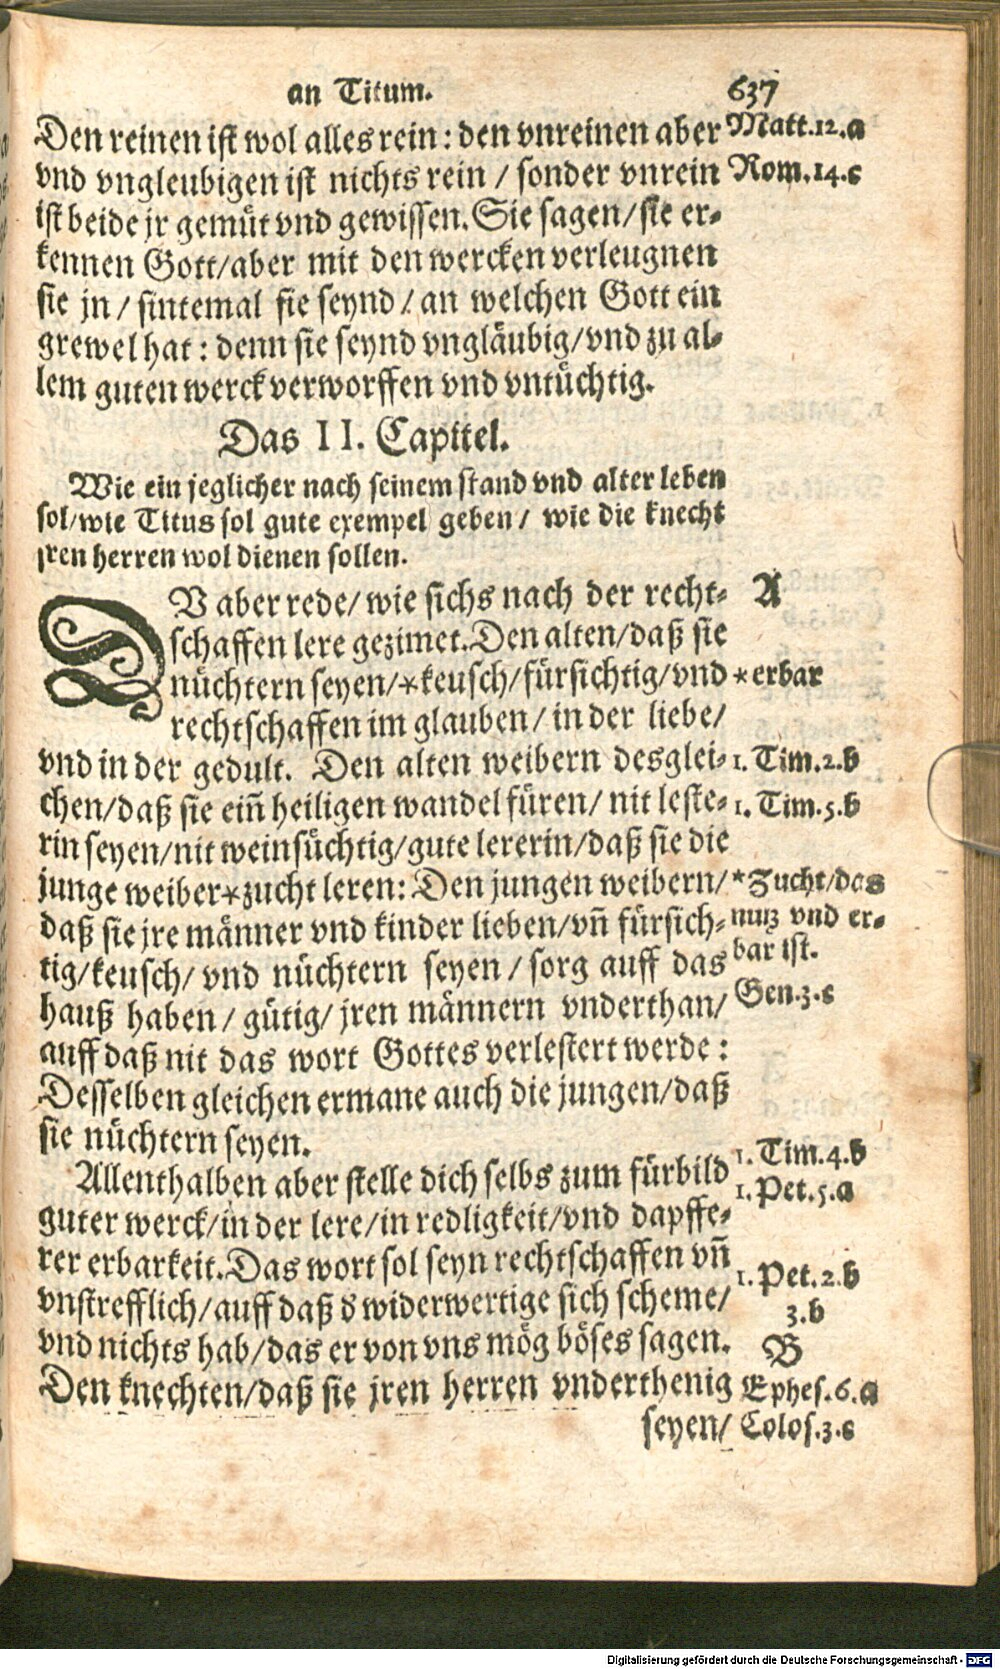 an Titum. 637
Den reinen ist wol alles rein : den vnreinen aber
vnd vngleubigen ist nichts rein / sonder vnrein
ist beide jr gemüt vnd gewissen. Sie sagen/ sie er-
kennen Gott/aber mit den wercken verleugnen
sie jn / sintemal sie seynd / an welchen Gott ein
grewel hat : denn sie seynd vngläubig/vnd zu al-
lem guten werck verworffen vnd vntüchtig.
Matt.12.a
Rom.14.c
Das II. Capitel.
Wie ein jeglicher nach seinem stand vnd alter leben
sol/wie Titus sol gute exempel geben / wie die knecht
jren herren wol dienen sollen.
DV aber rede/ wie sichs nach der recht-
schaffen lere gezimet. Den alten/daß sie
nüchtern seyen/*keusch/fürsichtig/vnd
rechtschaffen im glauben/ in der liebe/
vnd in der gedult. Den alten weibern desglei-
chen/daß sie einñ heiligen wandel füren/ nit leste-
rin seyen/nit weinsüchtig/gute lererin/daß sie die
junge weiber*zucht leren: Den jungen weibern/
daß sie jre männer vnd kinder lieben/vñ fürsich-
tig/keusch/ vnd nüchtern seyen / sorg auff das
hauß haben / gütig/ jren männern vnderthan/
auff daß nit das wort Gottes verlestert werde :
Desselben gleichen ermane auch die jungen/daß
sie nüchtern seyen.
A
*erbar
1. Tim.2.b
1. Tim.5.b
*Zucht/das
nutz vnd er-
bar ist.
Gen.3.c
Allenthalben aber stelle dich selbs zum fürbild
guter werck/in der lere/in redligkeit/vnd dapffe-
rer erbarkeit. Das wort sol seyn rechtschaffen vñ
vnstrefflich/auff daß d widerwertige sich scheme/
vnd nichts hab/das er von vns mög böses sagen.
Den knechten/daß sie jren herren vnderthenig
seyen/
1. Tim.4.b
1. Pet.5.a
1. Pet.2.b
3.b
B
Ephes.6.a
Colos.3.c
Digitalisierung gefördert durch die Deutsche Forschungsgemeinschaft - DFG